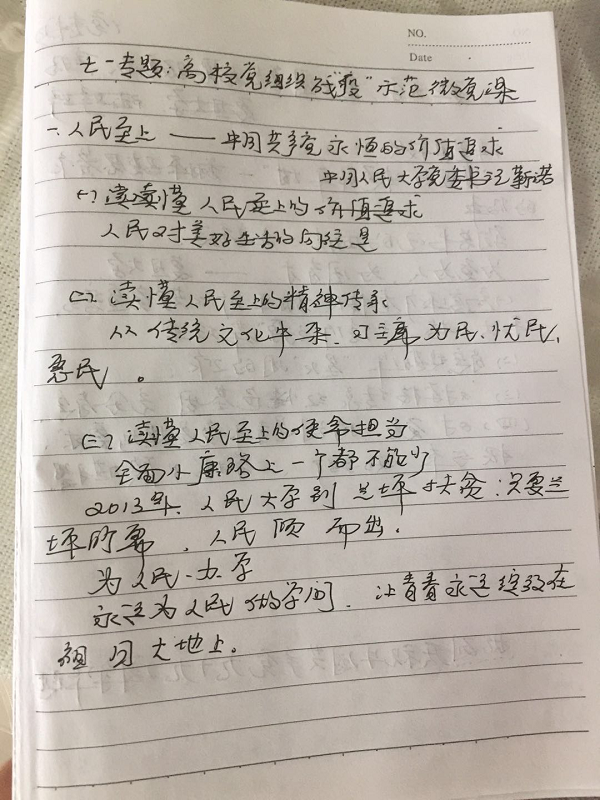 NO.
Date
七一专题:高校党组织战"疫"示范微党课
一、人民至上——中国共产党永恒的价值追求
中国人民大学党委书记靳诺
(一)读懂人民至上的价值追求
人民对美好生活的向往是
(二)读懂人民至上的精神传承
从传统文化中来,习主席为民、忧民、
惠民。
(三)读懂人民至上的使命担当
全面小康路上一个都不能少
2013年,人民大学到兰坪扶贫:只要兰
坪所需,人民倾而出。
为人民办学
永远为人民做学问,让青春永远绽放在
祖国大地上。